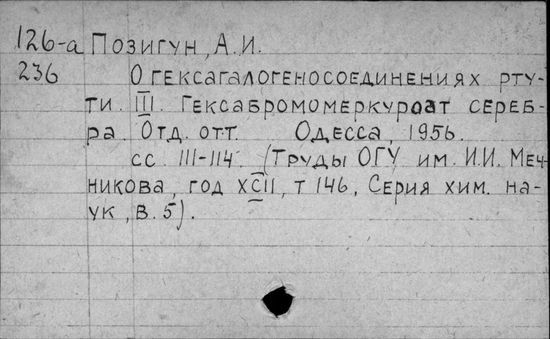 126-а Позигун, А.И.
236 О гексагалогеносоединениях рту-
ти. III. Гексабромомеркуроат сереб-
ра. Отд. отт. Одесса, 1956.
сс. 111-114. (Труды ОГУ им. И.И. Меч-
никова, год XCII, т 146, Серия хим. на-
ук, в. 5).